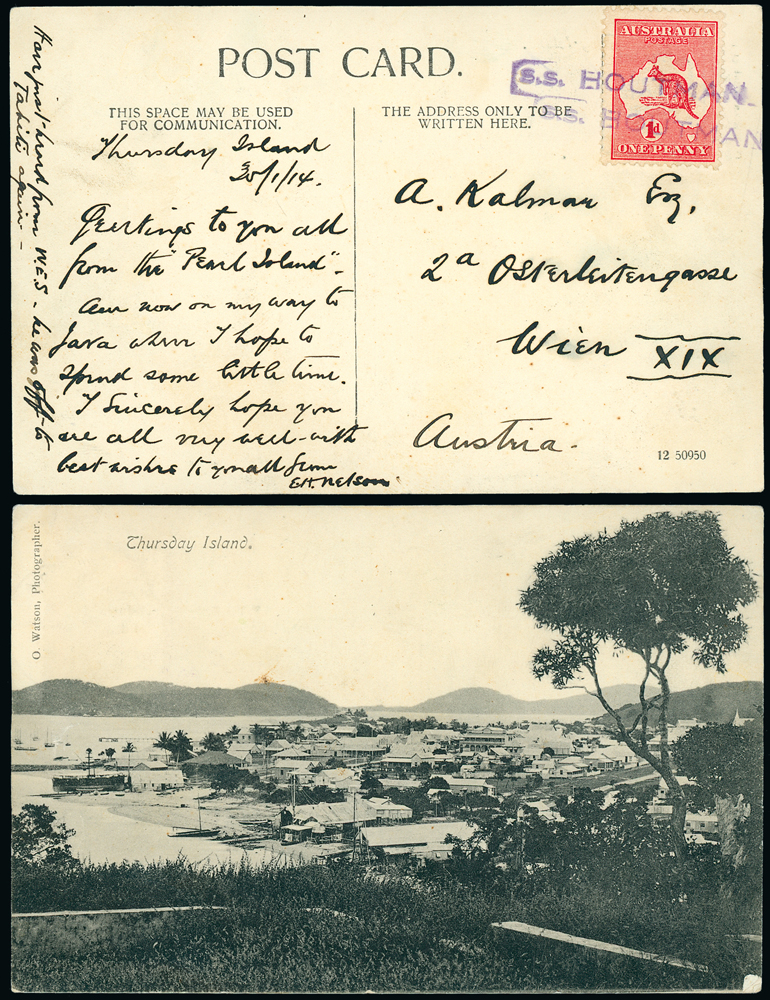 POST CARD.
THIS SPACE MAY BE USED
FOR COMMUNICATION.
THE ADDRESS ONLY TO BE
WRITTEN HERE.
AUSTRALIA
POSTAGE
1d
ONE PENNY
S.S. HOUTMAN.
S.S. HOUTMAN
Thursday Island
30/1/14.
Geertings to you all
from the "Pearl Island" -
Am now on my way to
Java where I hope to
spend some little time.
I Sincerely hope you
are all very well - with
best wishes to you all from
E.H. Nelson
Have just heard from W.E.S - he was off to
Tahiti again -
A. Kalmar Esq.
2a Osterleitengasse
Wien XIX
Austria.
12 50950
Thursday Island.
O. Watson, Photographer.